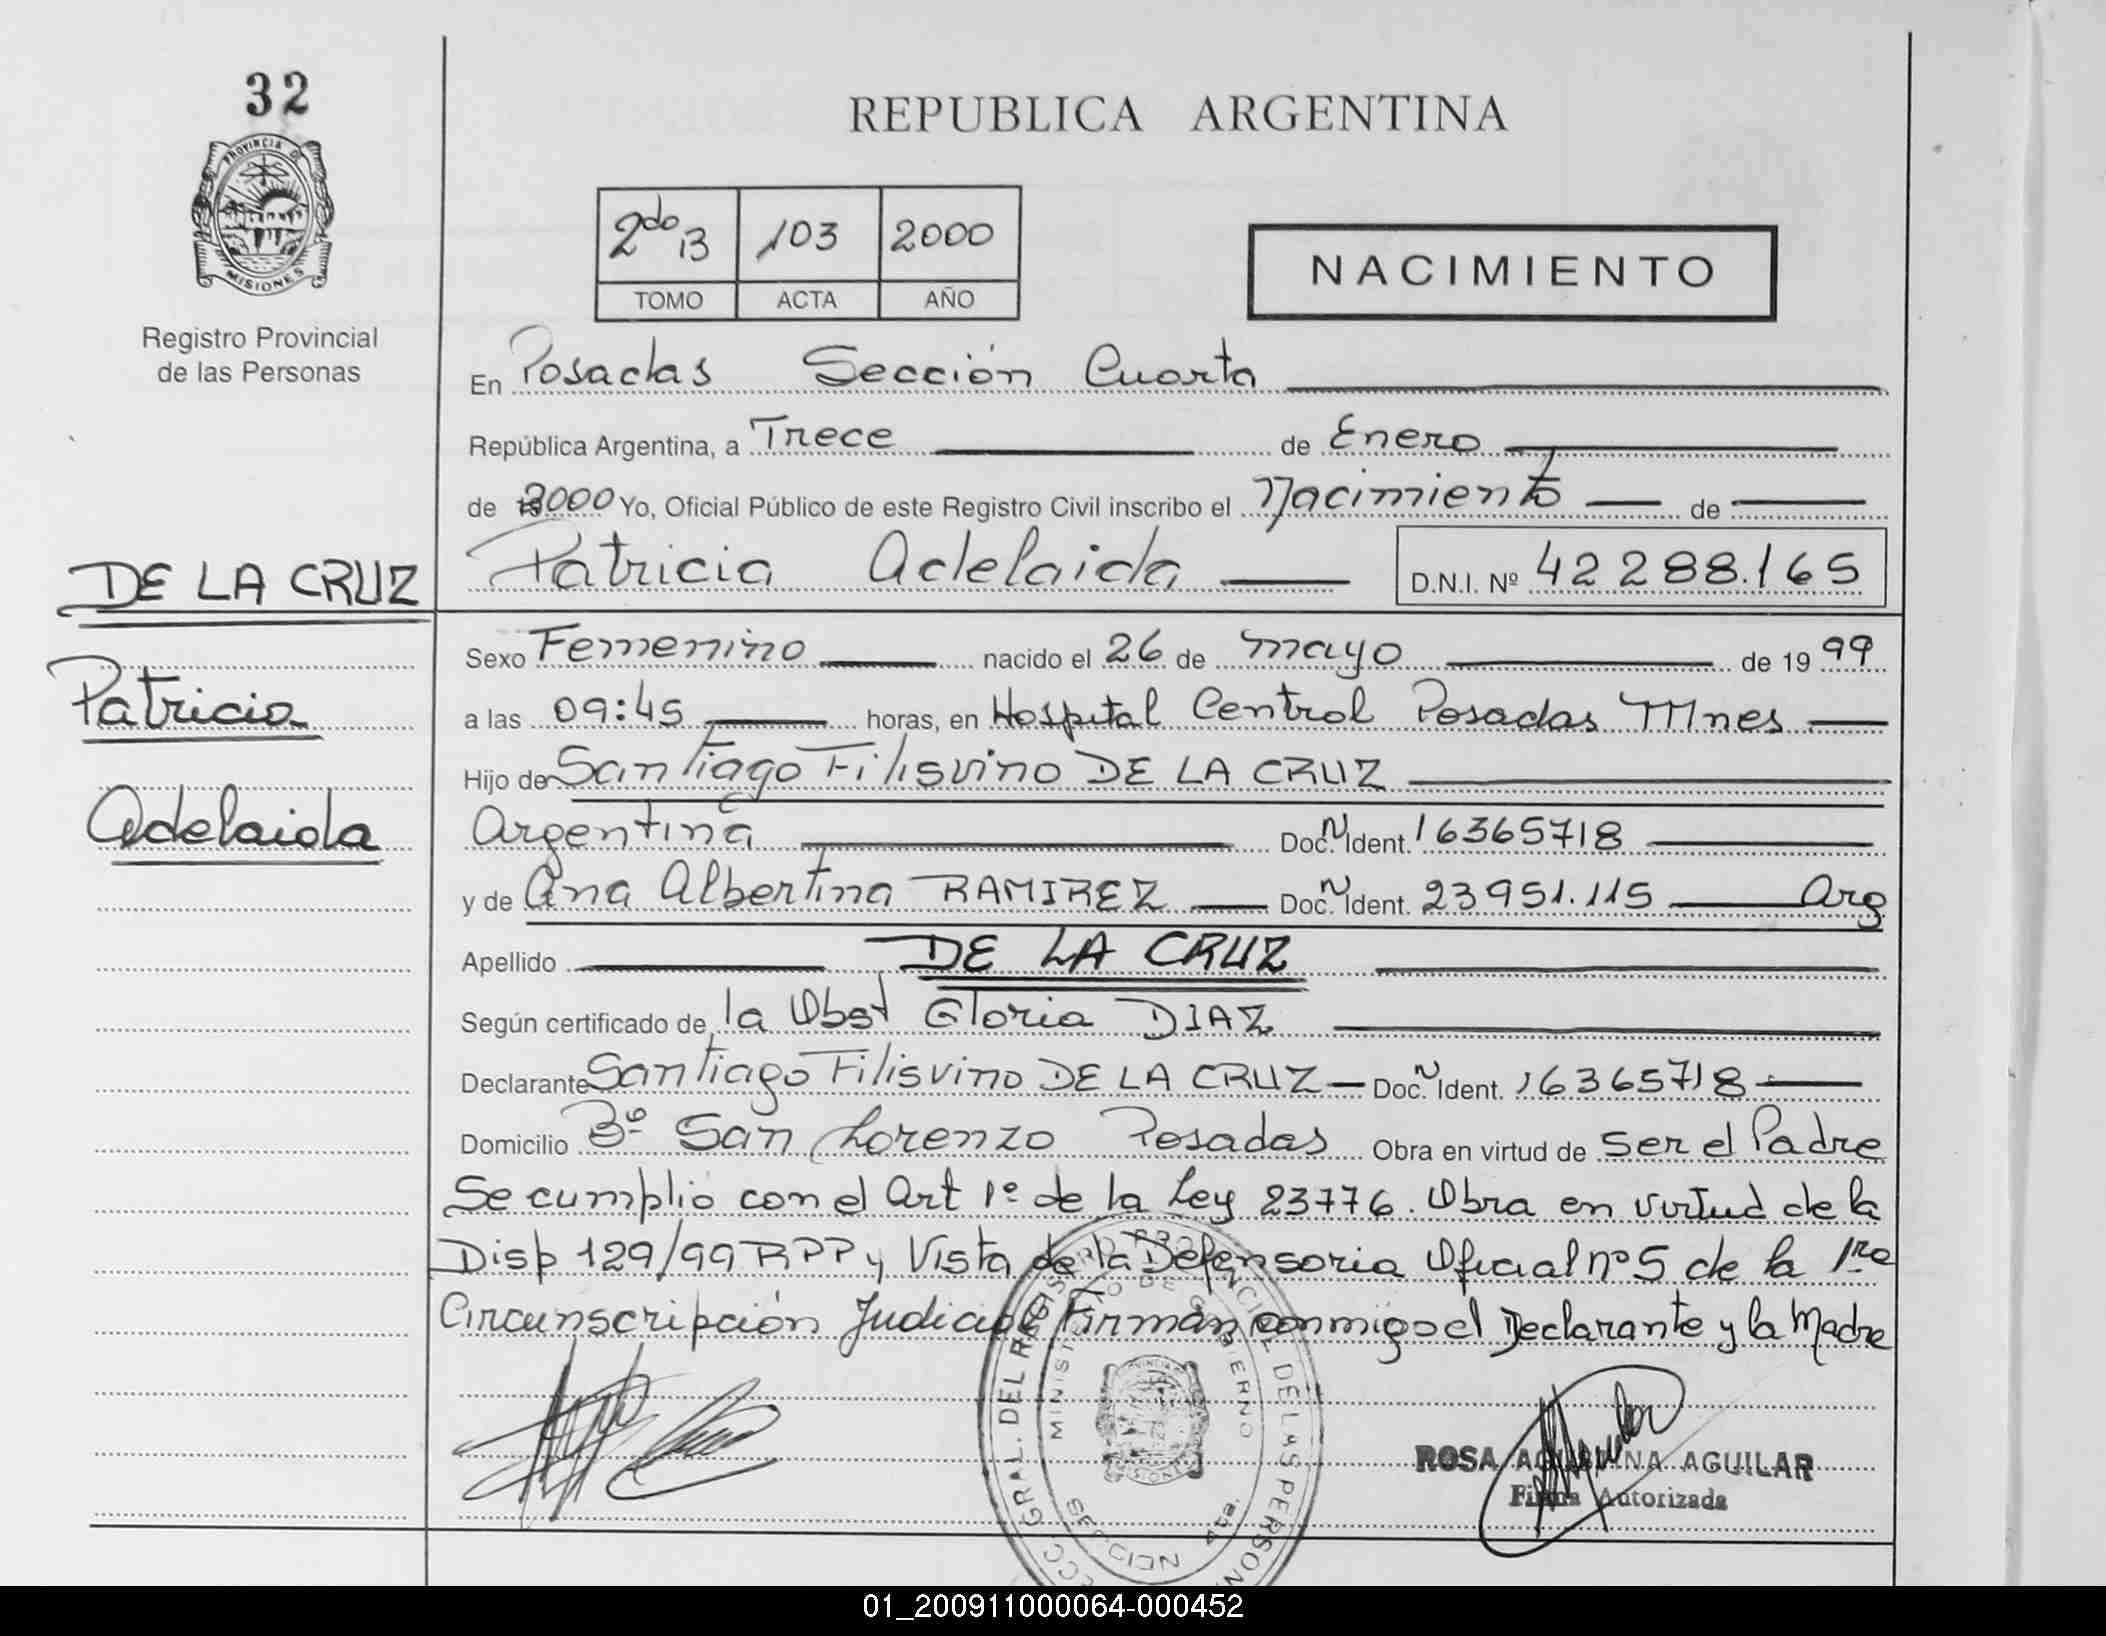 32
PROVINCIA D
MISIONES
Registro Provincial
de las Personas
DE LA CRUZ
Patricia
Adelaida
REPUBLICA ARGENTINA
2do B 103 2000
TOMO ACTA AÑO
NACIMIENTO
En Posadas Sección Cuarta
República Argentina, a Trece de Enero
de 2000 Yo, Oficial Público de este Registro Civil inscribo el Nacimiento de
Patricia Adelaida D.N.I. Nº 42288.165
Sexo Femenino nacido el 26 de mayo de 19 99
a las 09:45 horas, en Hospital Central Posadas Mnes
Hijo de Santiago Filisvino DE LA CRUZ
Argentina Doc. N Ident. 16365718
y de Ana Albertina RAMIREZ Doc. N Ident. 23951.115 Arg
Apellido DE LA CRUZ
Según certificado de la Obst Gloria DIAZ
Declarante Santiago Filisvino DE LA CRUZ Doc. N Ident. 16365718
Domicilio Bº San Lorenzo Posadas Obra en virtud de Ser el Padre
Se cumplió con el Art 1º de la Ley 23776. Obra en virtud de la
Disp 129/99 RPP y Vista de la Defensoria Oficial nº 5 de la 1ra
Circunscripción Judicial Firman conmigo el Declarante y la Madre
GRAL. DEL REGISTRO PROVINCIAL DE LAS PERSON
MINISTERIO DE GOBIERNO
PROVINCIA
MISIONES
ROSA AGUILAR
Firma Autorizada
01_200911000064-000452